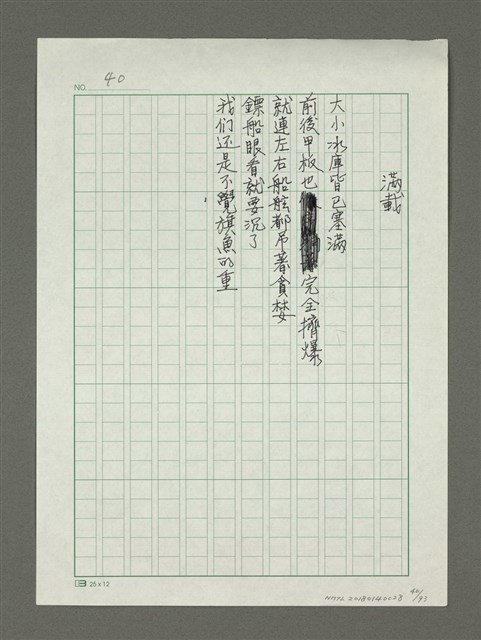 NO. 40
滿載
大小冰庫皆已塞滿
前後甲板也完全擠爆
就連左右船舷都吊著貪婪
鏢船眼看就要沉了
我们还是不覺旗魚的重
25 x 12
NMTL 20180140028 40/93